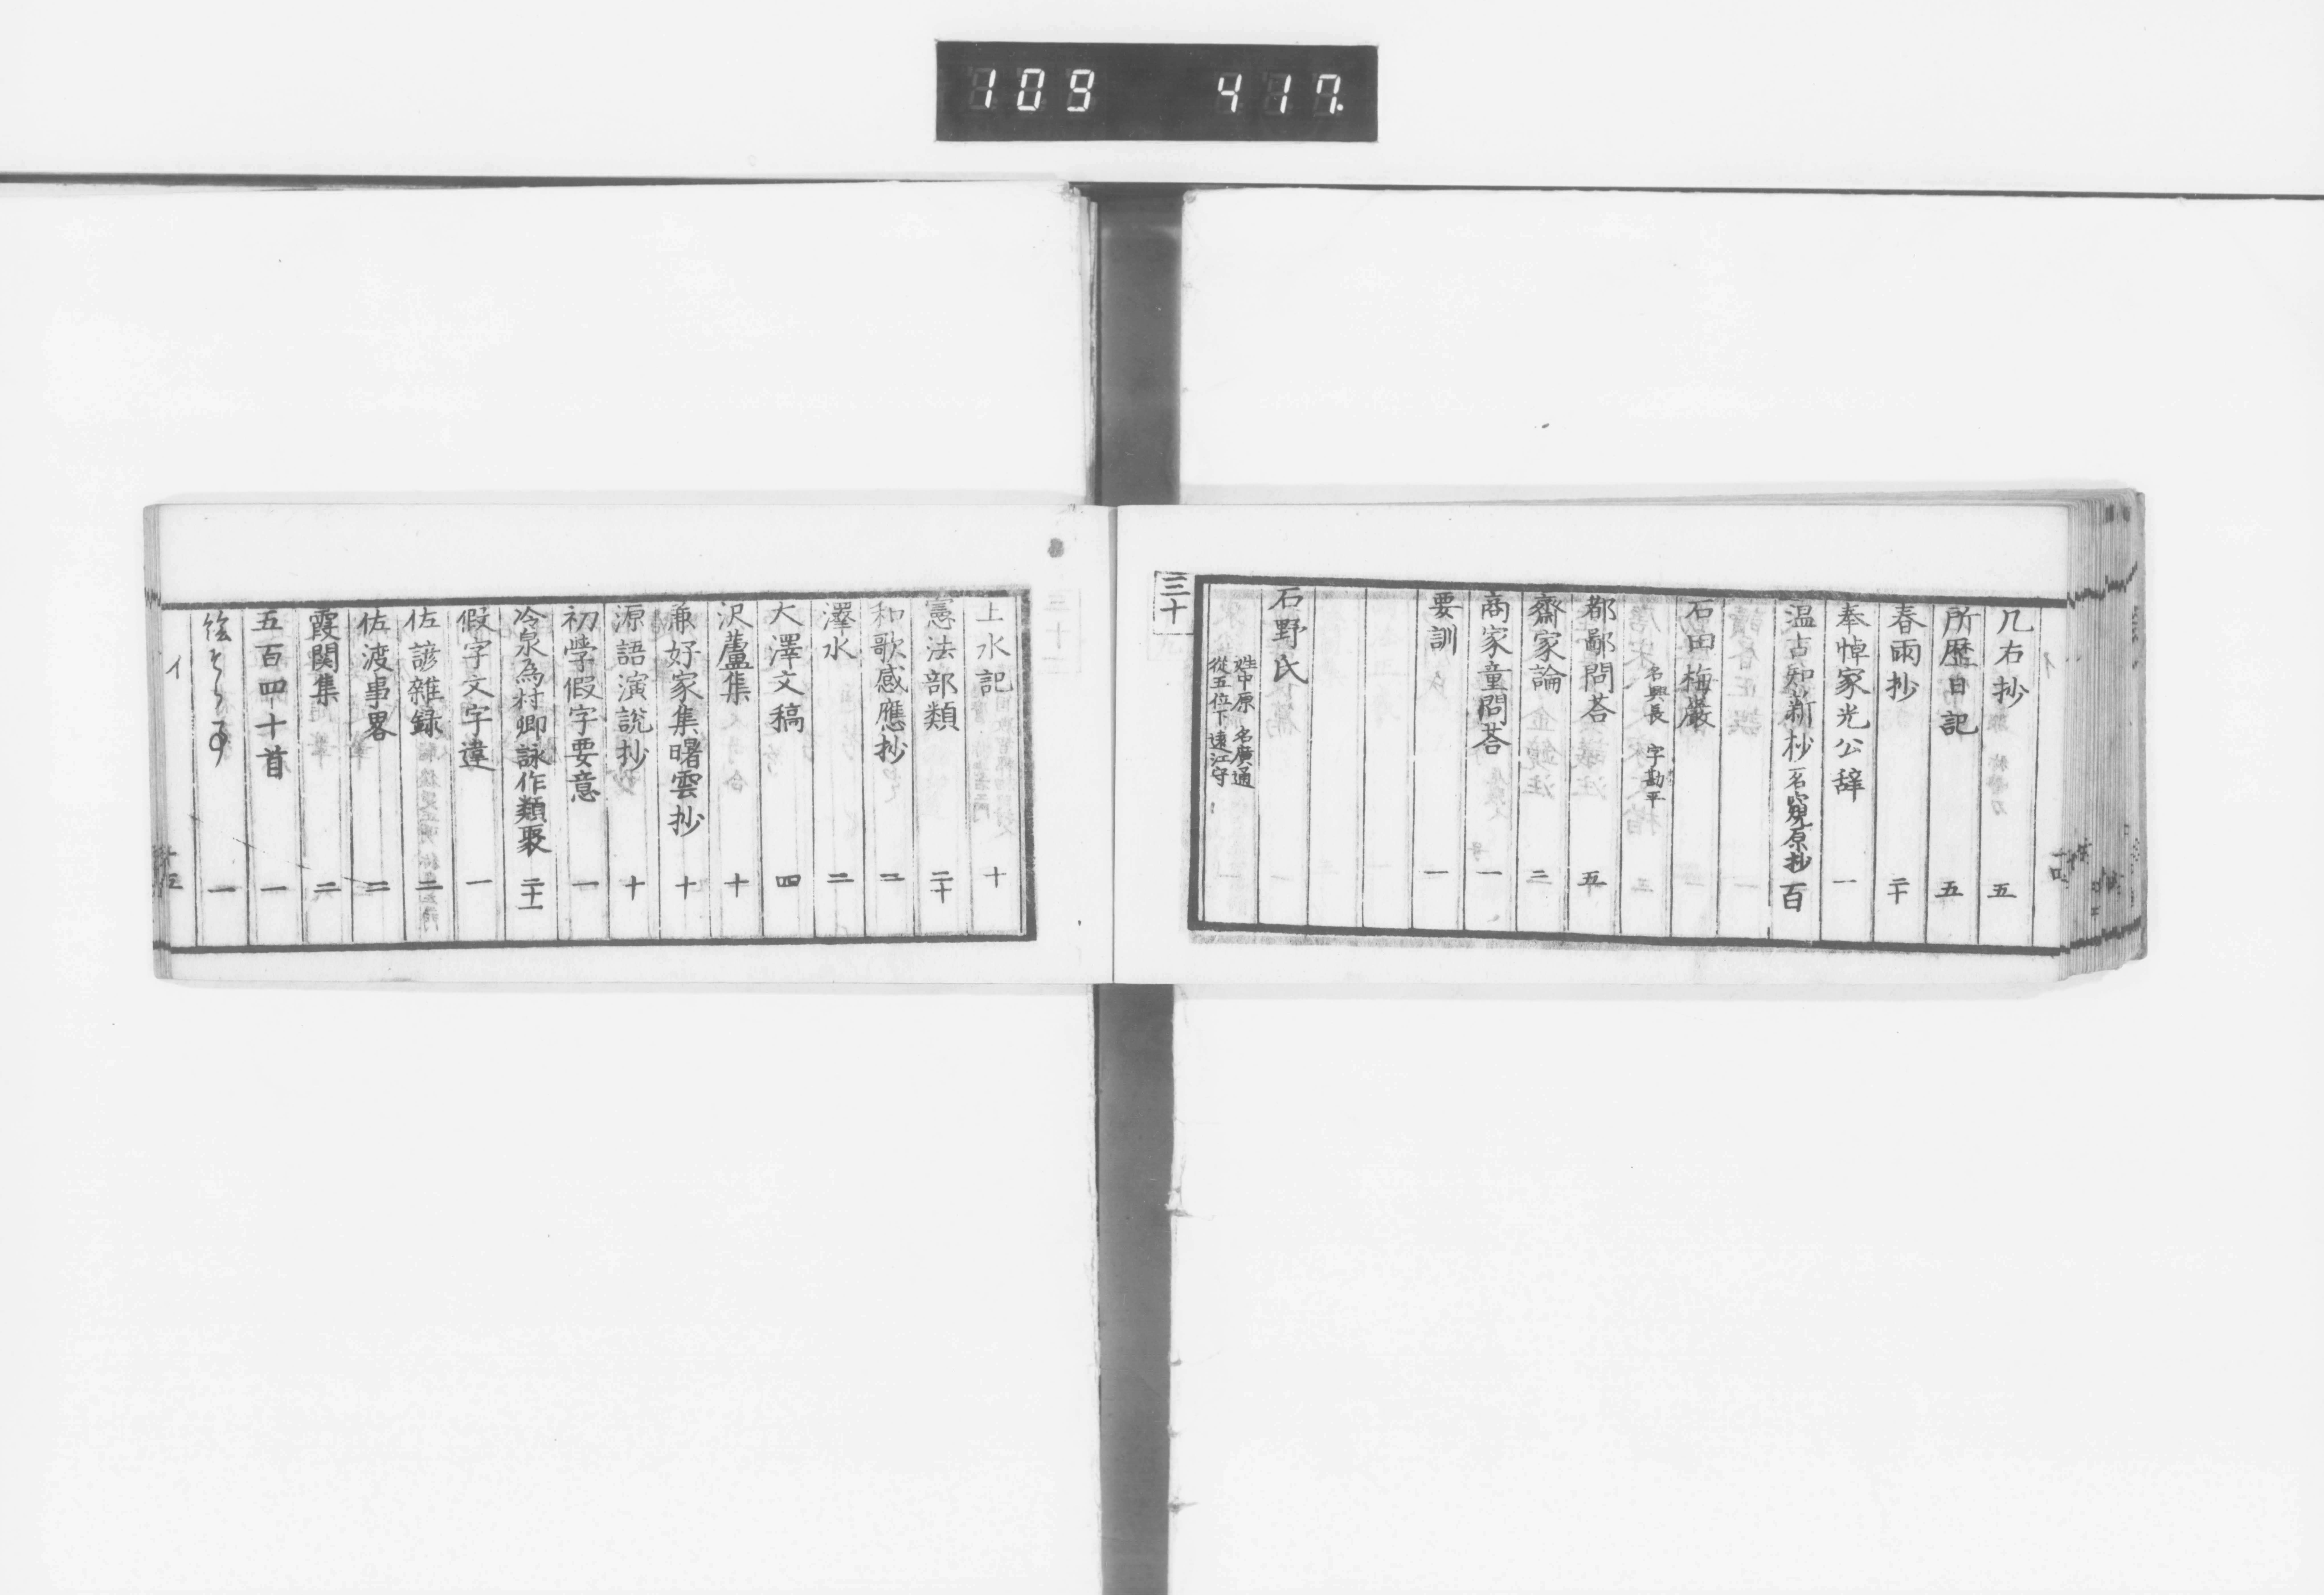 109 417.
几右抄 五
所歴日記 五
春雨抄 二十
奉悼家光公辞 一
温古知新抄 一名窺原抄 百
石田梅巌
名興長 字勘平
都鄙問荅 五
齋家論 二
商家童問荅 一
要訓 一
石野氏
姓中原 名廣通
從五位下 遠江守
三十
上水記 十
憲法部類 二十
和歌感應抄 二
澤水 二
大澤文稿 四
沢蘆集 十
兼好家集曙雲抄 十
源語演説抄 十
初學假字要意 一
冷泉為村卿詠作類聚 二十一
假字文字違 一
佐諺雜録 二
佐渡事畧 二
霞関集 二
五百四十首 一
一
イ